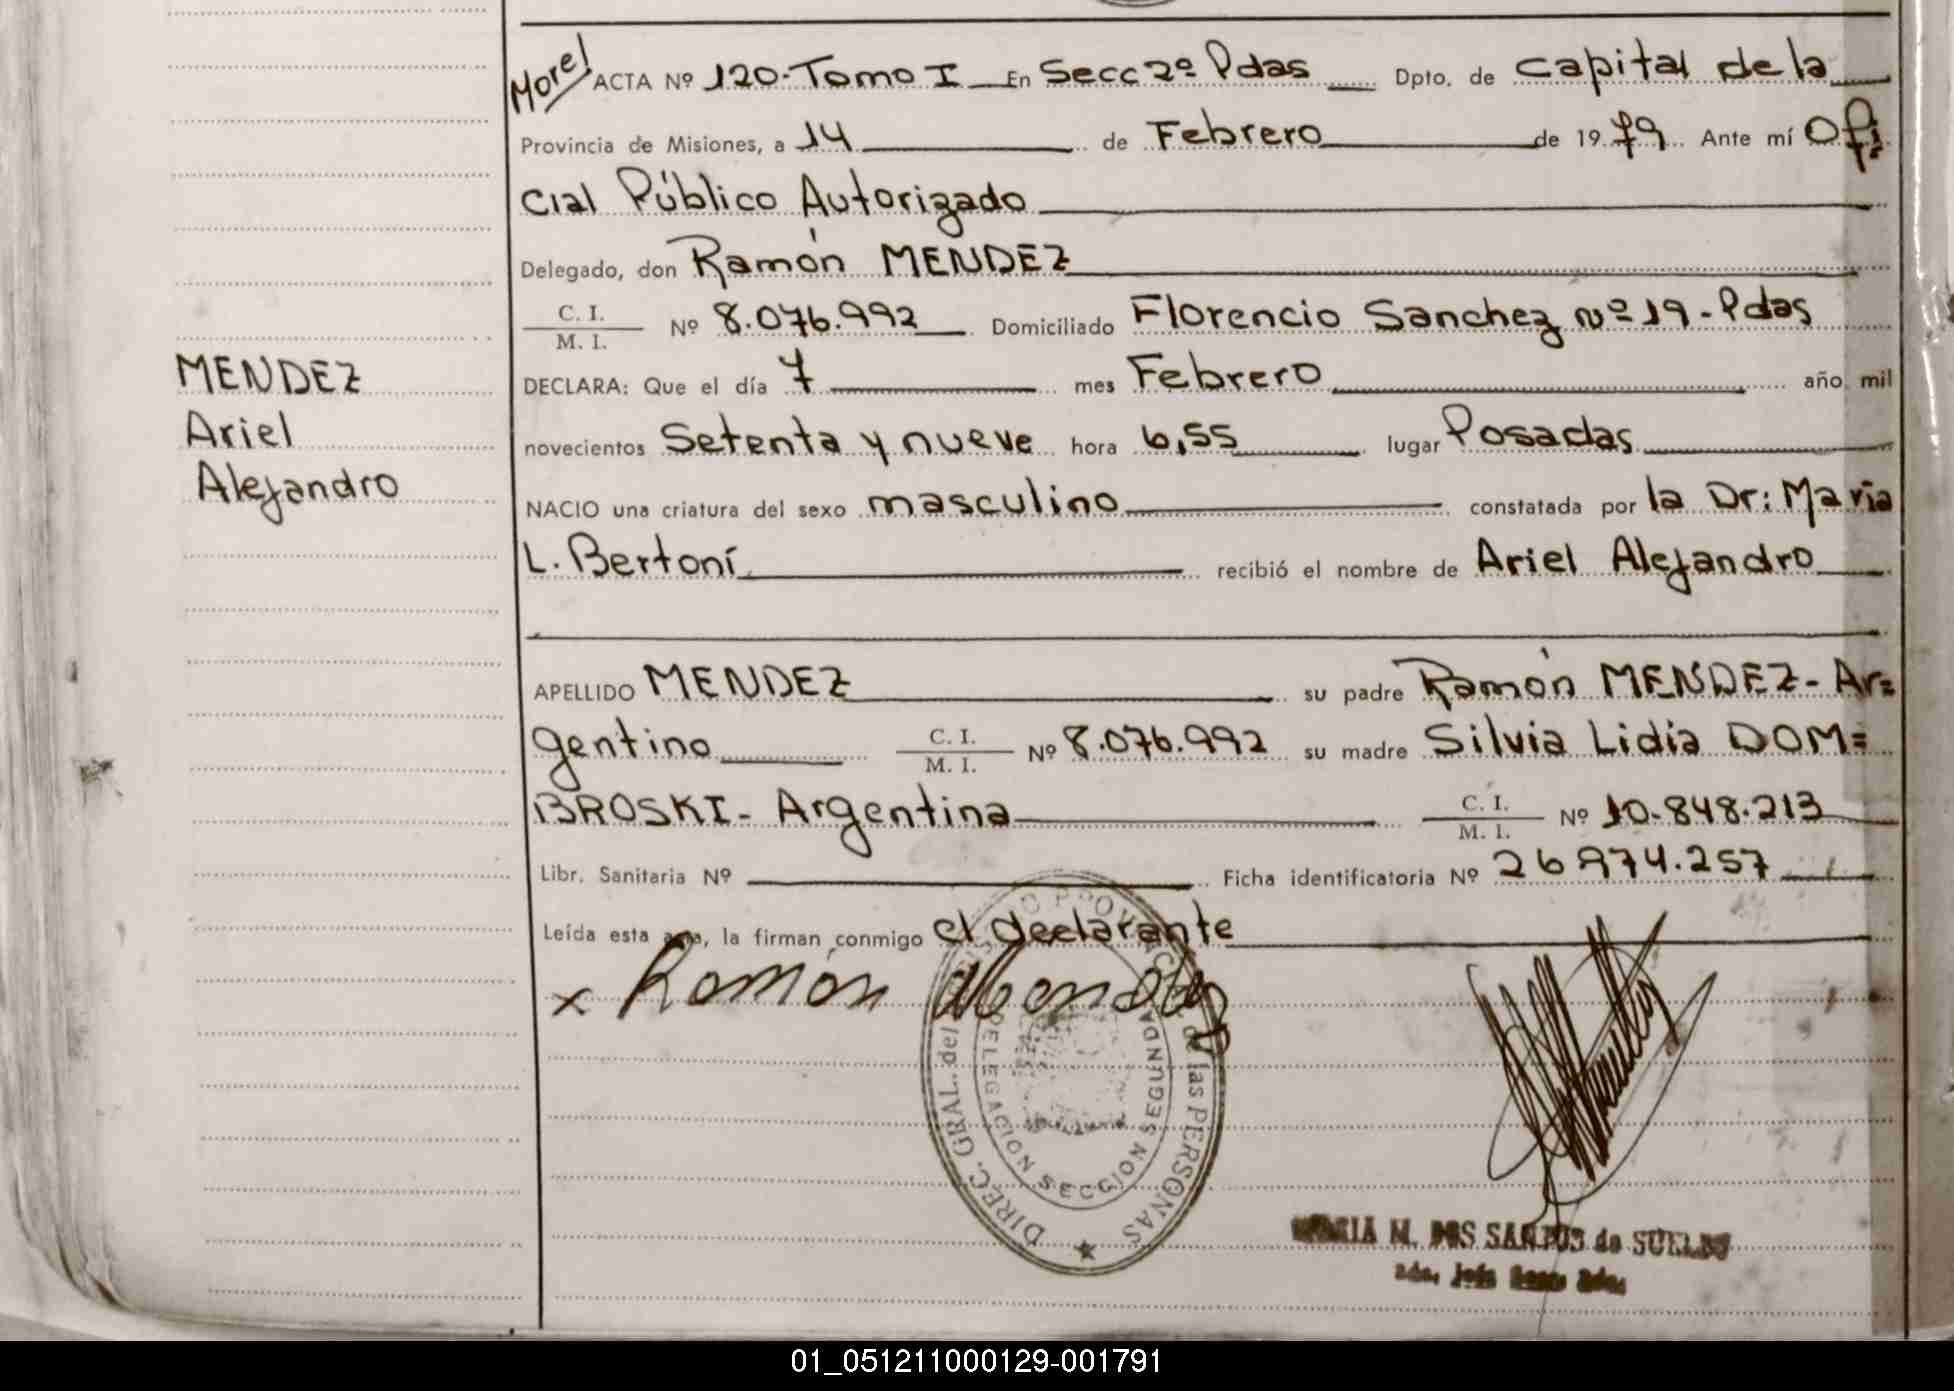 Morel ACTA Nº 120-Tomo I En Secc 2º Pdas Dpto. de Capital de la
Provincia de Misiones, a 14 de Febrero de 1979 Ante mí Ofi=
cial Público Autorizado
Delegado, don Ramón MENDEZ
C. I.
M. I.
Nº 8.076.992 Domiciliado Florencio Sanchez nº 19-Pdas
MENDEZ
Ariel
Alejandro
DECLARA: Que el día 7 mes Febrero año mil
novecientos Setenta y nueve hora 6,55 lugar Posadas
NACIO una criatura del sexo masculino constatada por la Dr: Maria
L. Bertoní recibió el nombre de Ariel Alejandro
APELLIDO MENDEZ su padre Ramón MENDEZ- Ar=
gentino C. I. M. I. Nº 8.076.992 su madre Silvia Lidia DOM=
BROSKI- Argentina C. I. M. I. Nº 10.848.213
Libr. Sanitaria Nº Ficha identificatoria Nº 26974.257
Leída esta acta, la firman conmigo el declarante
x Ramón Mendez
DIREC. GRAL. del REGISTRO PROVINCIAL de las PERSONAS
DELEGACION SECCION SEGUNDA
MARIA M. DOS SANTOS de SUELDO
01_051211000129-001791